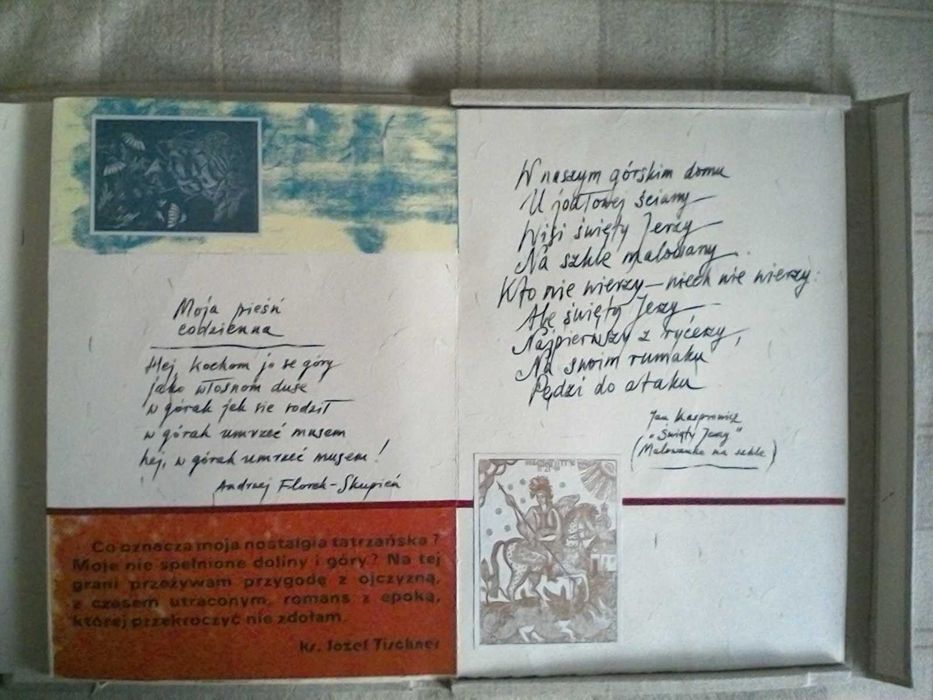 Moja pieśń
codzienna
Hej, kochom jo se góry
jako włosnom duse
w górak jek sie rodził
w górak umrzeć musem
hej, w górak umrzeć musem!
Andrzej Florek-Skupień
Co oznacza moja nostalgia tatrzańska?
Moje nie spełnione doliny i góry? Na tej
grani przeżywam przygodę z ojczyzną,
z czasem utraconym, romans z epoką,
której przekroczyć nie zdołam.
ks. Józef Tischner
W naszym górskim domu
U jodłowej ściany
Wisi święty Jerzy
Na szkle malowany.
Kto nie wierzy – niech nie wierzy:
Ale święty Jerzy
Najpierwszy z rycerzy,
Na swoim rumaku
Pędzi do ataku
Jan Kasprowicz
"Święty Jerzy"
(Malowanka na szkle)